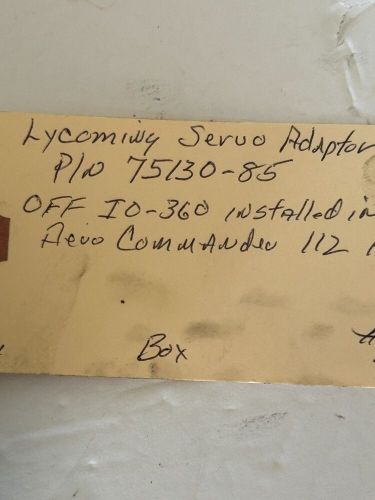 Lycoming Servo Adaptor
P/N 75130-85
OFF IO-360 installed in
Aero Commander 112
Box